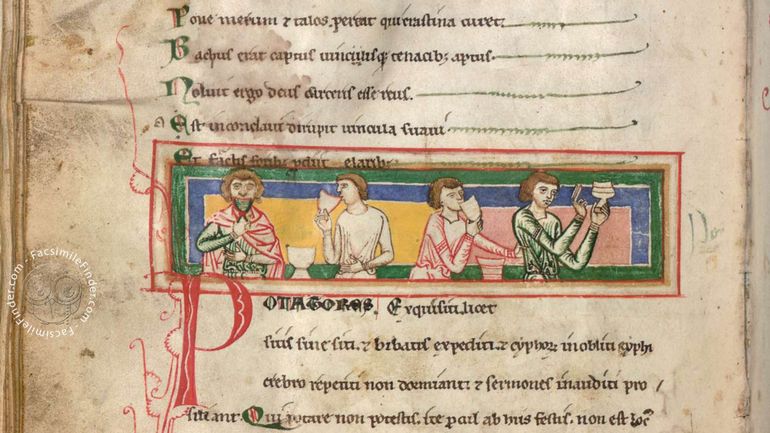 Pone merum & talos. pereat qui crastina curet.
Bachus erat captus vinculisq; tenacib; aptus.
Noluit ergo deus carceris esse reus.
Ast in conclavi dirupit vincula suavi
Et foribus laribus
POTATORES. Exquisiti. licet
sitis sine siti. & bibatis expediti. & cyphor inobliti. cyphi
crebro repetiti non dormiant. & sermones inauditi pro
siliant. Qui potare non potestis. ite pcul ab his festis. non est loc
FacsimileFinder.com - FacsimileFinder.com -